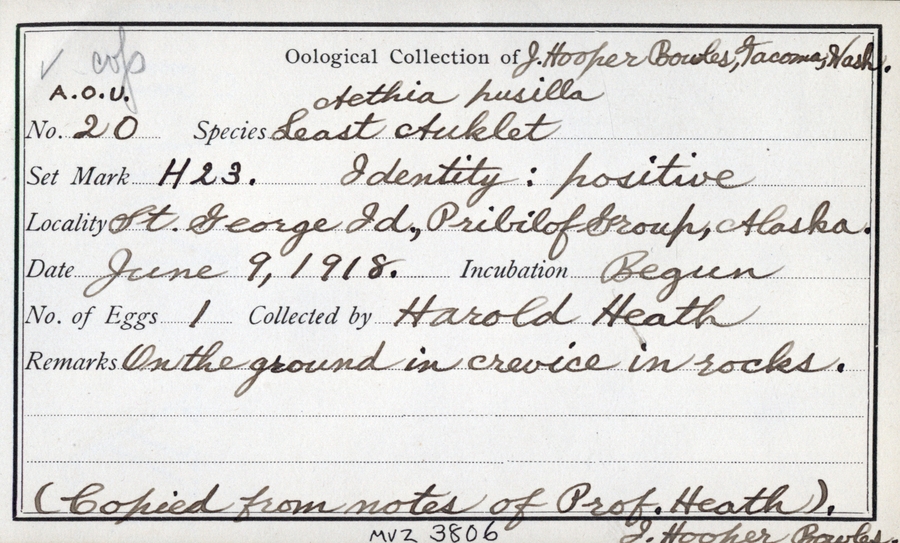 ✓ cop
Oological Collection of J. Hooper Bowles, Tacoma, Wash.
A.O.U. Aethia pusilla
No. 20 Species Least Auklet
Set Mark H23. Identity: positive
Locality St. George Id., Pribilof Group, Alaska.
Date June 9, 1918. Incubation Begun
No. of Eggs 1 Collected by Harold Heath
Remarks On the ground in crevice in rocks.
(Copied from notes of Prof. Heath).
MVZ 3806 J. Hooper Bowles.